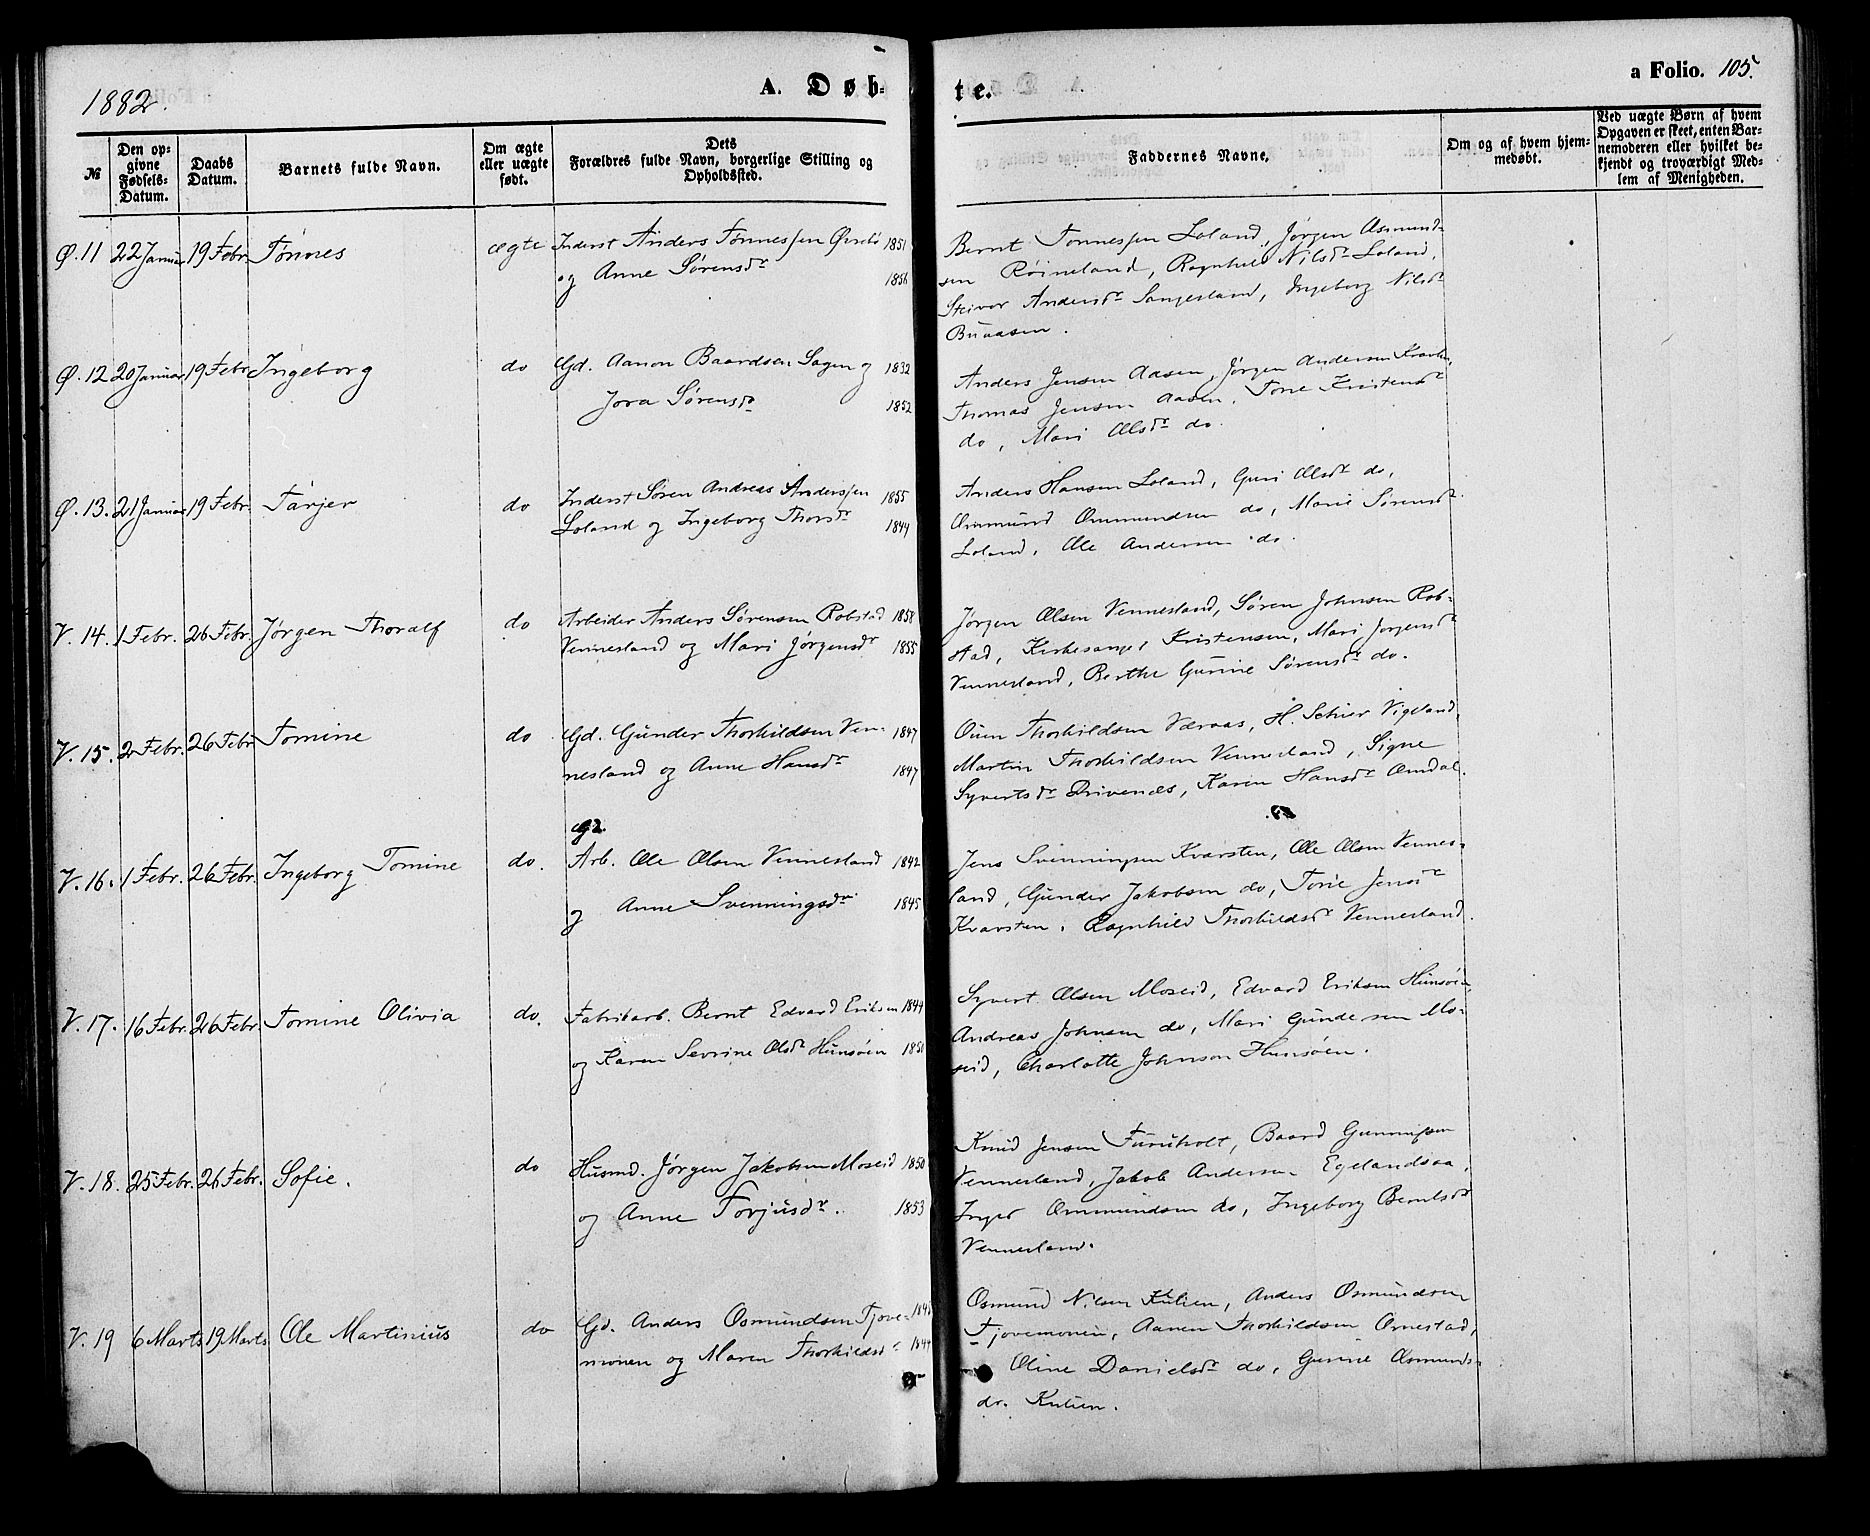 1882.
A. Døb-
te.
a Folio. 105.
№
Den op-
givne
Fødsels-
Datum.
Daabs
Datum.
Barnets fulde Navn.
Om ægte
eller uægte
født.
Dets
Forældres fulde Navn, borgerlige Stilling og
Opholdssted.
Faddernes Navne.
Om og af hvem hjem-
medøbt.
Ved uægte Børn af hvem
Opgaven er skeet, enten Bar-
nemoderen eller hvilket be-
kjendt og troværdigt Med-
lem af Menigheden.
Ø. 11 22 Januar 19 Febr. Tønnes ægte Inderst Anders Tønnessen Øvrebø 1851
og Anne Sørensdr
Bernt Tønnessen Loland, Jørgen Asmund-
sen Røineland, Ragnhild Nilsdr Loland,
Andersdr Sangesland, Ingeborg Nilsdr
Buaasen.
Ø. 12 20 Januar 19 Febr Ingeborg do Gd. Aanon Baardsen Sagen og 1832
Jora Sørensdr 1852
Anders Jensen Aasen, Jørgen Andersen
Thomas Jensen Aasen, Torie Kristensdr
do, Mari Olsdr do.
Ø. 13. 21 Januar 19 Febr. Tarjer do Inderst Søren Andreas Anderssen 1855
Loland og Ingeborg Thorsdr 1844
Anders Hansen Loland, Guri Olsdr do,
Ommund Ommundsen do, Marie Sørensdr
Loland, Ole Andersen do.
V. 14. 1 Febr. 26 Febr. Jørgen Thoralf do Arbeider Anders Sørensen Robstad 1858
Vennesland og Mari Jørgensdr 1855
Jørgen Olsen Vennesland, Søren Johnsen Rob-
stad, Kirkesanger Kristensen, Mari Jørgensdr
Vennesland, Berthe Gurine Sørensdr do.
V. 15. 2 Febr. 26 Febr Tomine do Gd. Gunder Thorkildsen Ven- 1847
nesland og Anne Hansdr 1847
Ouen Thorkildsen Væraas, H. Schier Vigeland,
Martin Thorkildsen Vennesland, Signe
Syvertsdr Drivenes, Karen Hansdr Omdal.
V. 16. 1 Febr. 26 Febr. Ingeborg Tomine do. Arb. Ole Olsen Vennesland 1842
og Anne Svenningsdr 1845
Jens Svenningsen Kvarsten, Ole Olsen Vennes-
land, Gunder Jakobsen do, Torie Jensdr
Kvarsten, Ragnhild Thorkildsdr Vennesland.
V. 17. 16 Febr. 26 Febr. Tomine Olivia do. Fabrikarb. Bernt Edvard Eriksen 1844
og Karen Sevrine Olsdr Hunsøen 1851
Syvert Olsen Moseid, Edvard Eriksen Hunsøen,
Andreas Johnsen do, Mari Gundersen Mo-
seid, Charlotte Johnson Hunsøen.
V. 18. 25 Febr. 26 Febr. Sofie. do Husmd. Jørgen Jakobsen Moseid 1850
og Anne Torjusdr. 1853
Knud Jensen Furuholt, Baard Gunnufsen
Vennesland, Jakob Andersen Egelandsaa,
Inger Ommundsen do, Ingeborg Berntsdr
Vennesland.
V. 19 6 Marts 19 Marts. Ole Martinius do Gd. Anders Osmundsen Fjove-
monen og Maren Thorkildsdr 1844
Osmund Nilsen Kulien, Anders Osmundsen
Fjovemonen, Aanen Thorkildsen Ørnestad,
Oline Danielsdr do, Gurine Osmunds-
dr. Kulien.